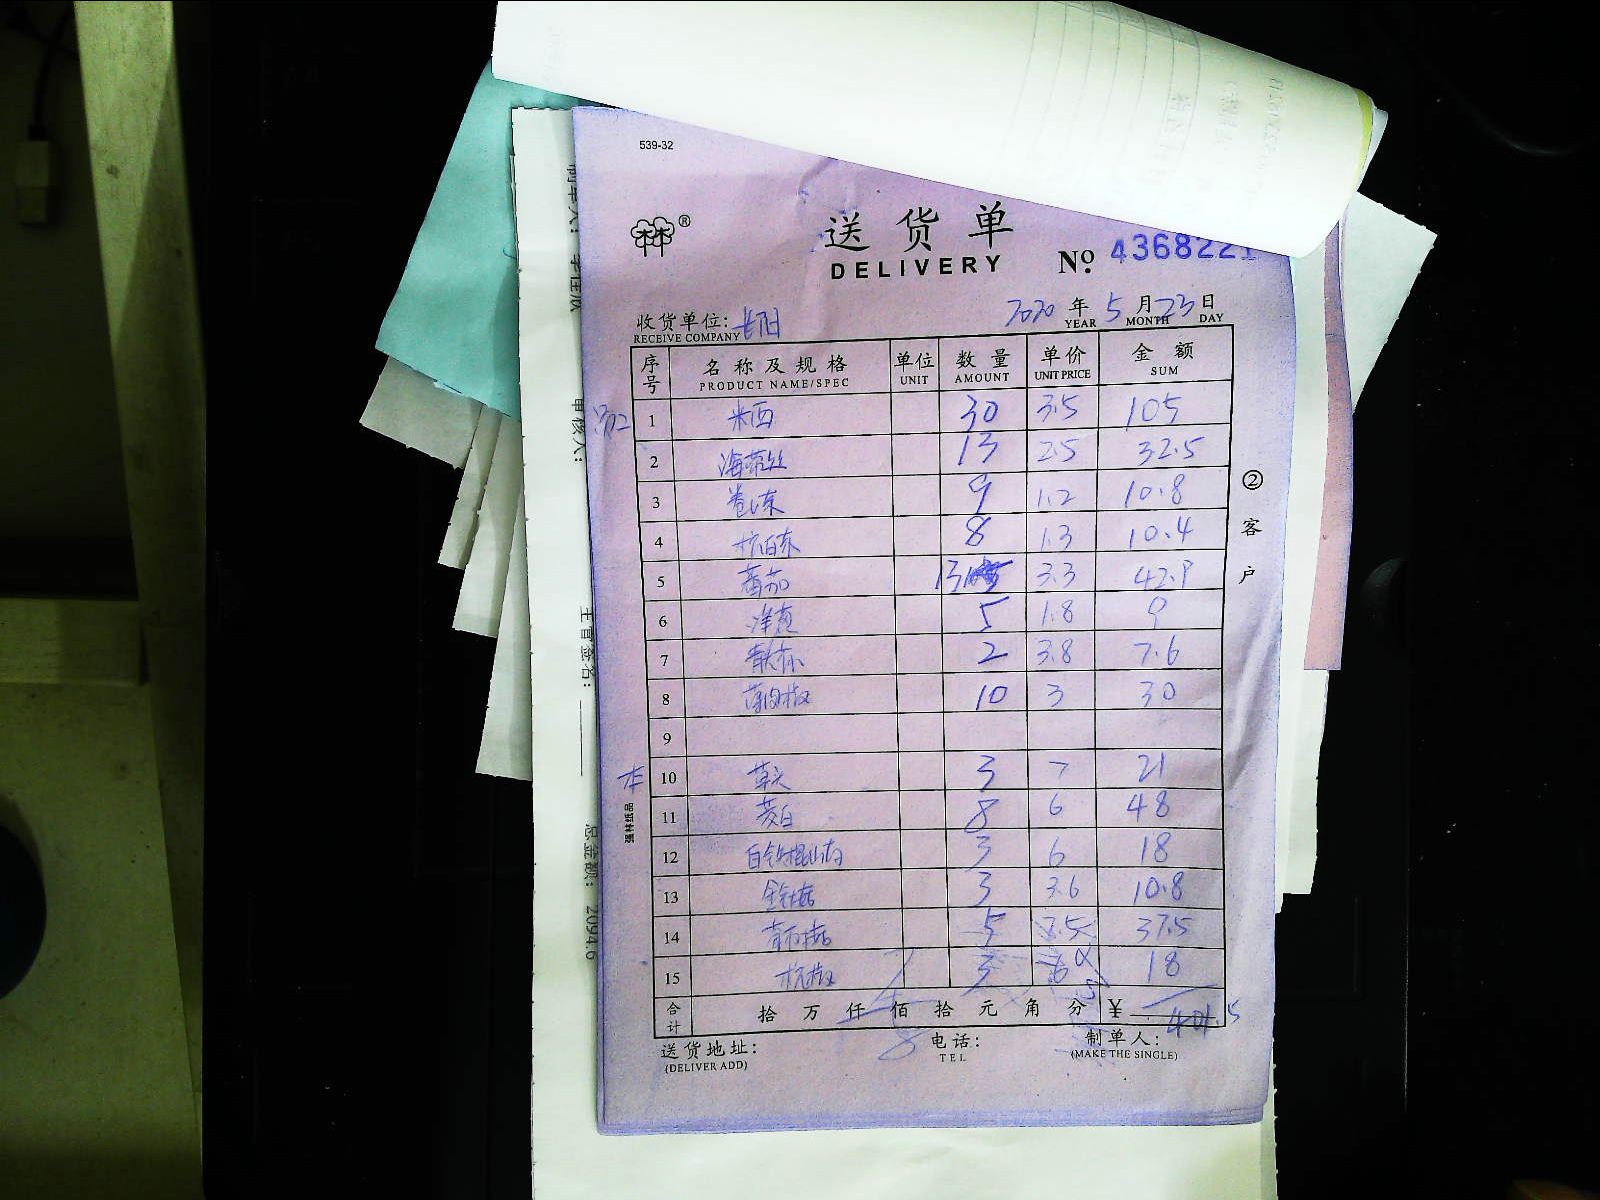 539-32
®
送货单
DELIVERY
No. 4368221
收货单位:
RECEIVE COMPANY
2020 年 5 月 23 日
YEAR MONTH DAY
序号 名称及规格 单位 数量 单价 金额
PRODUCT NAME/SPEC UNIT AMOUNT UNIT PRICE SUM
1 米西 30 3.5 105
2 海带丝 13 2.5 32.5
3 卷心菜 9 1.2 10.8
4 杭白菜 8 1.3 10.4
5 番茄 13 3.3 42.9
6 洋葱 5 1.8 9
7 2 3.8 7.6
8 薄肉椒 10 3 30
9
10 草头 3 7 21
11 茭白 8 6 48
12 3 6 18
13 金针菇 3 3.6 10.8
14 5 7.5 37.5
15 杭椒 3 6 18
合计 拾 万 仟 佰 拾 元 角 分 ¥ 401.5
送货地址: 电话: 制单人:
(DELIVER ADD) TEL (MAKE THE SINGLE)
② 客户
强林纸品
审核人:
主管签名:
总金额: 2094.6